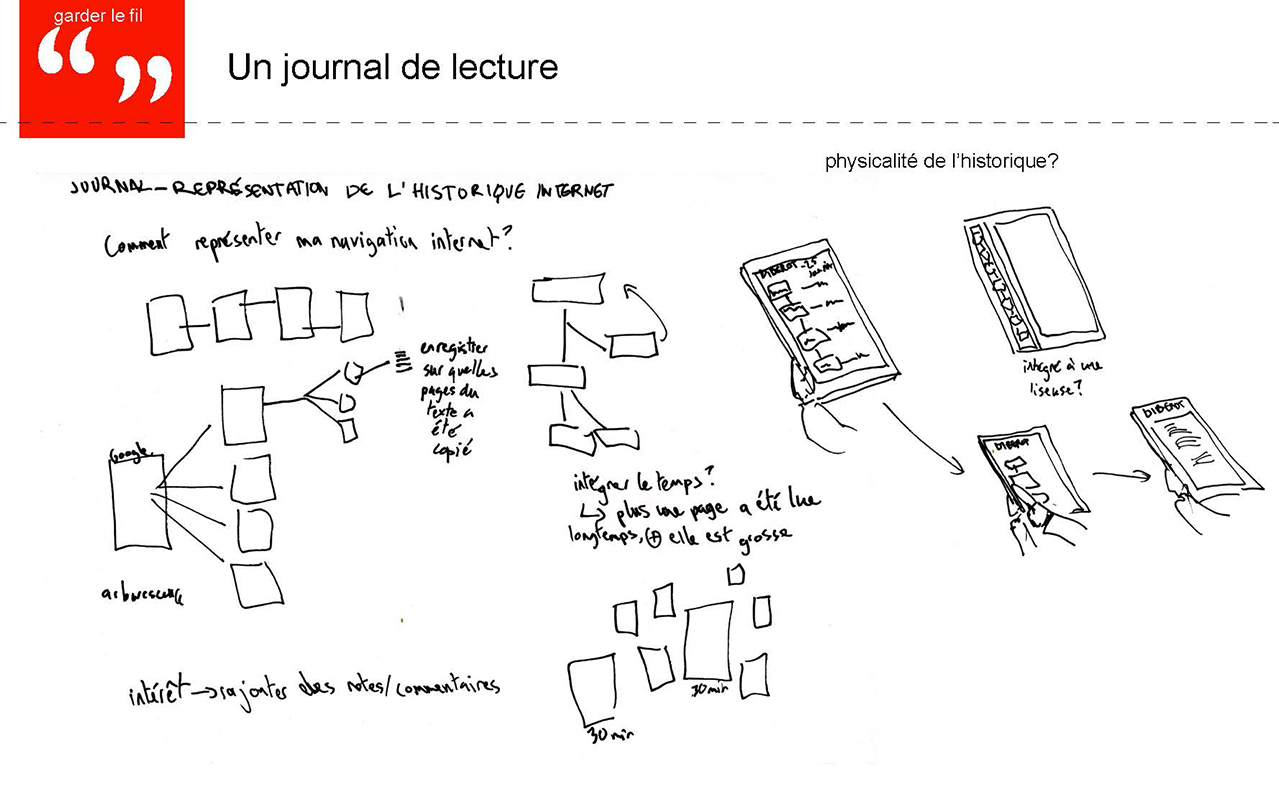 garder le fil
“ ”
Un journal de lecture
physicalité de l'historique?
JOURNAL – REPRÉSENTATION DE L'HISTORIQUE INTERNET
Comment représenter ma navigation internet?
enregistrer
sur quelles
pages du
texte a
été
copié
Google
arborescence
intégrer le temps?
↳ plus une page a été lue
longtemps, ⊕ elle est grosse
30 min
30 min
intérêt → rajouter des notes/commentaires
DIDEROT - 25
intégré à une
liseuse?
DIDEROT
DIDEROT